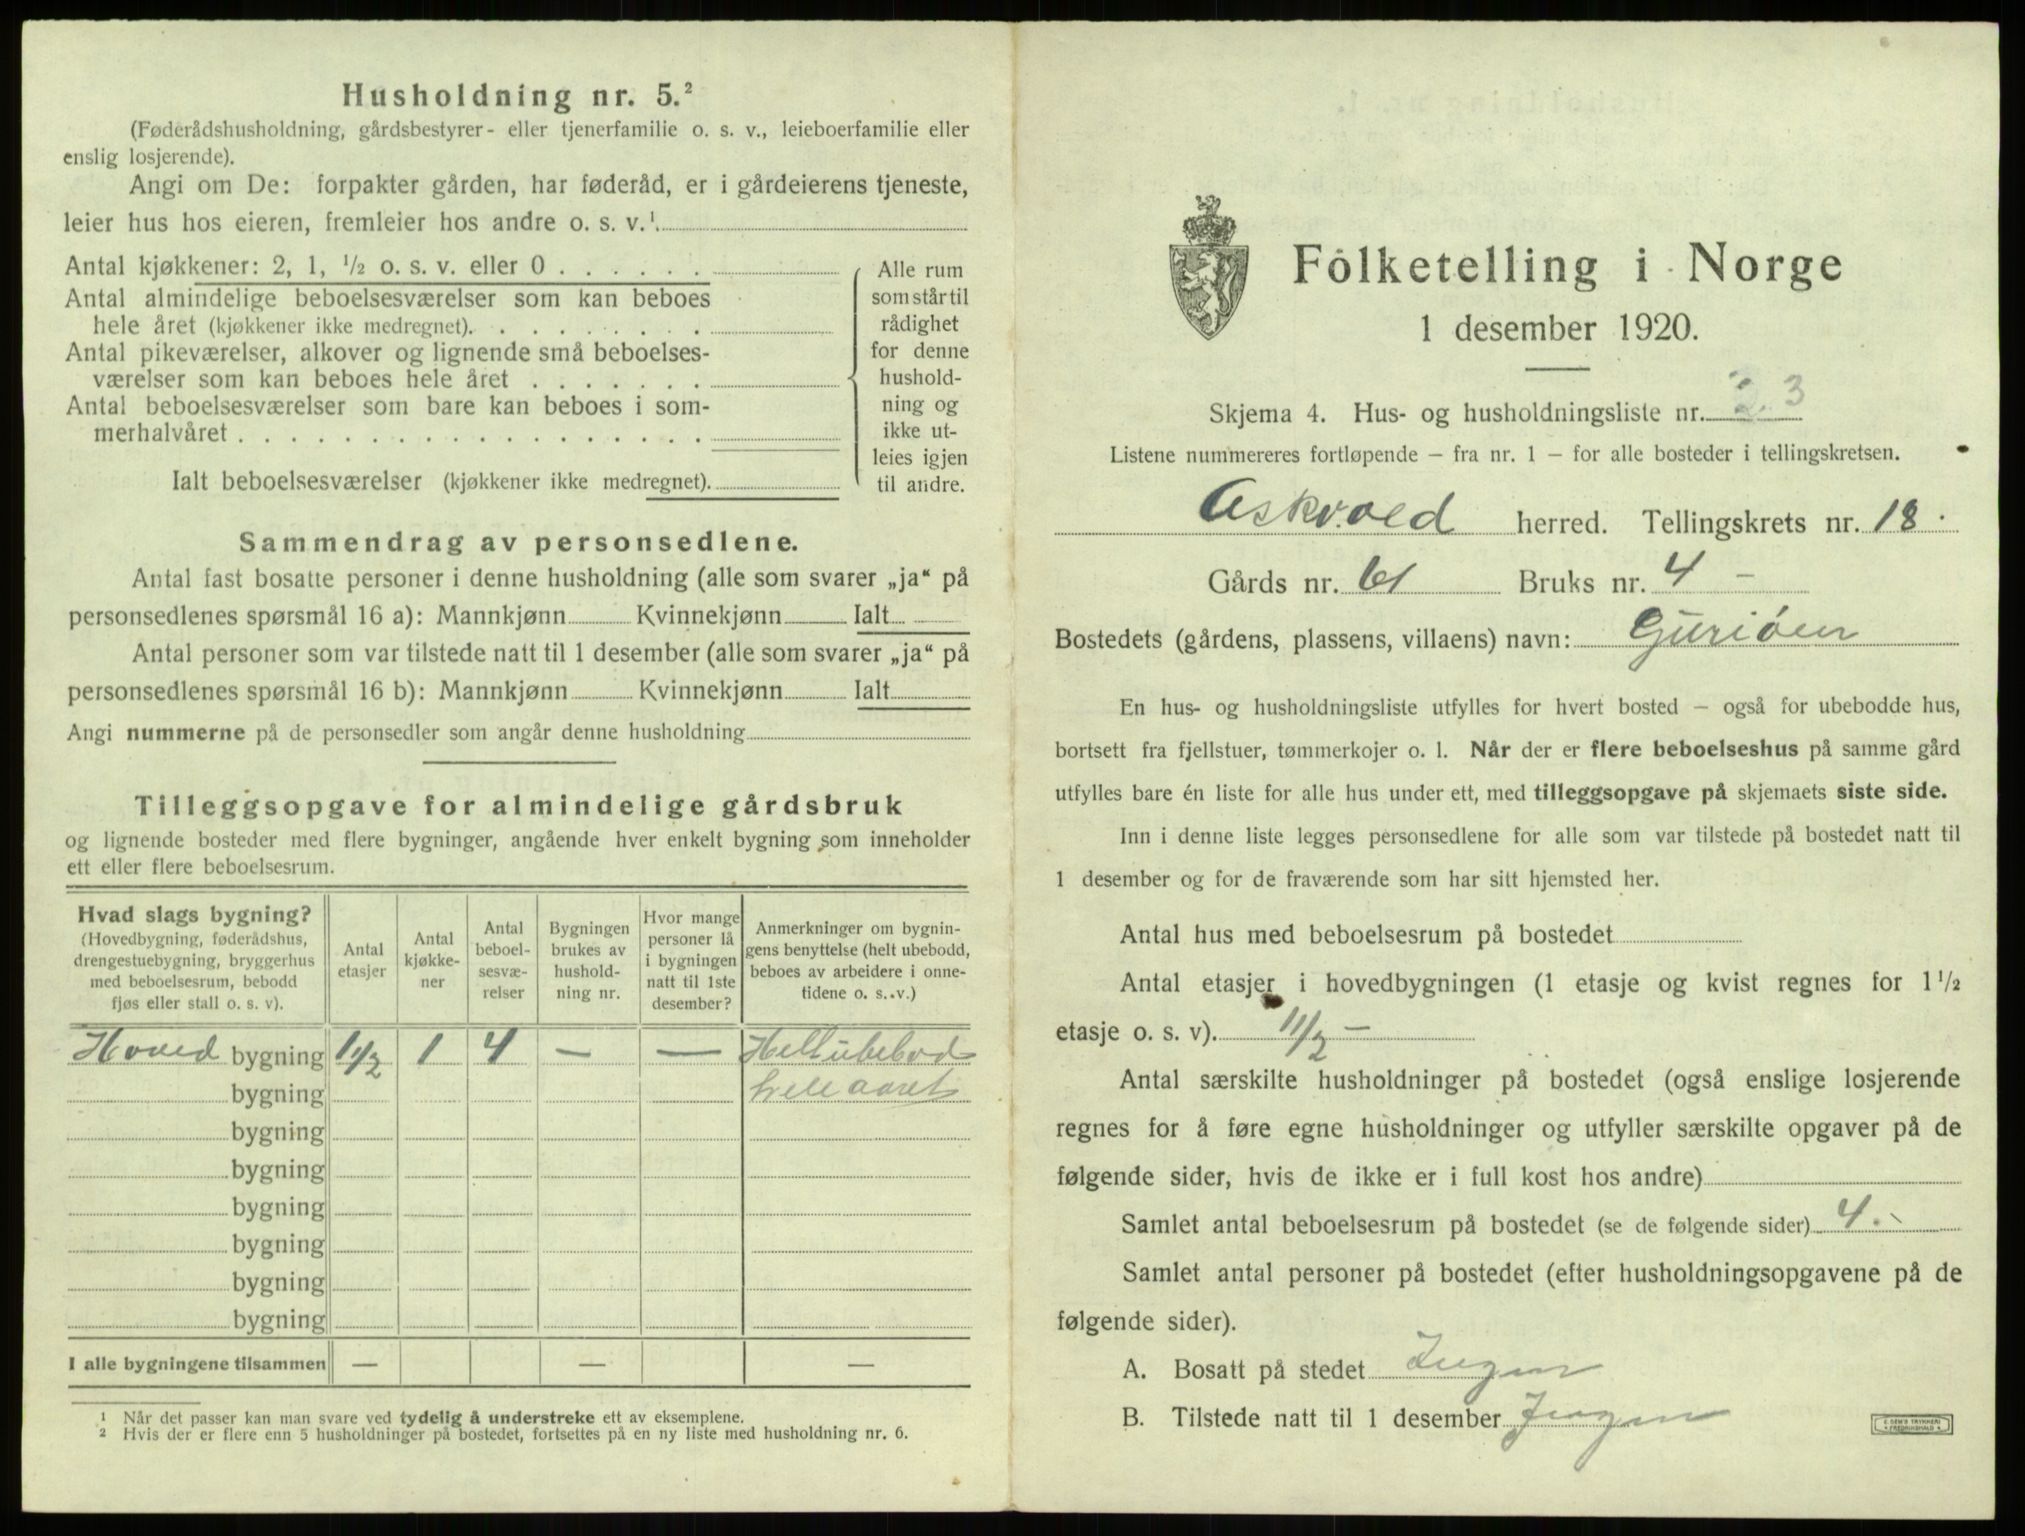 Husholdning nr. 5.²
(Føderådshusholdning, gårdsbestyrer- eller tjenerfamilie o. s. v., leieboerfamilie eller
enslig losjerende).
Angi om De: forpakter gården, har føderåd, er i gårdeierens tjeneste,
leier hus hos eieren, fremleier hos andre o. s. v.¹
Antal kjøkkener: 2, 1, ½ o. s. v. eller 0 . . . . . .
Antal almindelige beboelsesværelser som kan beboes
hele året (kjøkkener ikke medregnet). . . . . . . . .
Antal pikeværelser, alkover og lignende små beboelses-
værelser som kan beboes hele året . . . . . . .
Antal beboelsesværelser som bare kan beboes i som-
merhalvåret . . . . . . . . . . . . . . . . . .
Ialt beboelsesværelser (kjøkkener ikke medregnet).
Alle rum
som står til
rådighet
for denne
hushold-
ning og
ikke ut-
leies igjen
til andre.
Sammendrag av personsedlene.
Antal fast bosatte personer i denne husholdning (alle som svarer „ja“ på
personsedlenes spørsmål 16 a): Mannkjønn Kvinnekjønn Ialt
Antal personer som var tilstede natt til 1 desember (alle som svarer „ja“ på
personsedlenes spørsmål 16 b): Mannkjønn Kvinnekjønn Ialt
Angi nummerne på de personsedler som angår denne husholdning
Tilleggsopgave for almindelige gårdsbruk
og lignende bosteder med flere bygninger, angående hver enkelt bygning som inneholder
ett eller flere beboelsesrum.
Hvad slags bygning?
(Hovedbygning, føderådshus,
drengestuebygning, bryggerhus
med beboelsesrum, bebodd
fjøs eller stall o. s. v).
Antal
etasjer
Antal
kjøkke-
ner
Antal
beboel-
sesvæ-
relser
Bygningen
brukes av
hushold-
ning nr.
Hvor mange
personer lå
i bygningen
natt til 1ste
desember?
Anmerkninger om bygnin-
gens benyttelse (helt ubebodd,
beboes av arbeidere i onne-
tidene o. s. v.)
Hoved bygning 1 1/2 1 4 — — Helt ubebod
bygning hele aaret
bygning
bygning
bygning
bygning
bygning
bygning
I alle bygningene tilsammen — — —
¹ Når det passer kan man svare ved tydelig å understreke ett av eksemplene.
² Hvis der er flere enn 5 husholdninger på bostedet, fortsettes på en ny liste med husholdning nr. 6.
Folketelling i Norge
1 desember 1920.
Skjema 4. Hus- og husholdningsliste nr. 3
Listene nummereres fortløpende – fra nr. 1 – for alle bosteder i tellingskretsen.
Askvold herred. Tellingskrets nr. 18.
Gårds nr. 61 Bruks nr. 4 –
Bostedets (gårdens, plassens, villaens) navn: Guriöen
En hus- og husholdningsliste utfylles for hvert bosted – også for ubebodde hus,
bortsett fra fjellstuer, tømmerkojer o. l. Når der er flere beboelseshus på samme gård
utfylles bare én liste for alle hus under ett, med tilleggsopgave på skjemaets siste side.
Inn i denne liste legges personsedlene for alle som var tilstede på bostedet natt til
1 desember og for de fraværende som har sitt hjemsted her.
Antal hus med beboelsesrum på bostedet
Antal etasjer i hovedbygningen (1 etasje og kvist regnes for 1 ½
etasje o. s. v). 1 1/2 –
Antal særskilte husholdninger på bostedet (også enslige losjerende
regnes for å føre egne husholdninger og utfyller særskilte opgaver på de
følgende sider, hvis de ikke er i full kost hos andre)
Samlet antal beboelsesrum på bostedet (se de følgende sider) 4.
Samlet antal personer på bostedet (efter husholdningsopgavene på de
følgende sider).
A. Bosatt på stedet Ingen
B. Tilstede natt til 1 desember Ingen